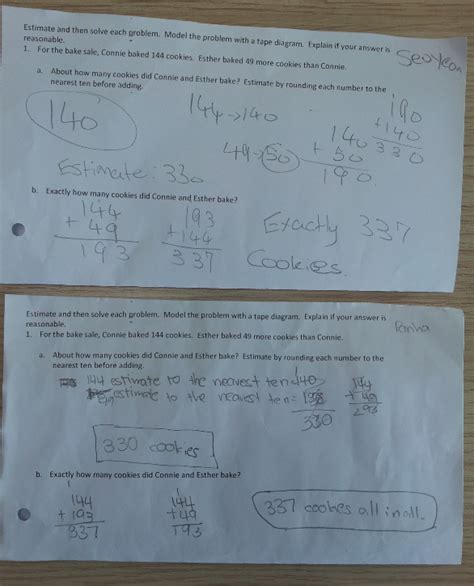 Estimate and then solve each problem. Model the problem with a tape diagram. Explain if your answer is
reasonable.
SeoYeon
1. For the bake sale, Connie baked 144 cookies. Esther baked 49 more cookies than Connie.
a. About how many cookies did Connie and Esther bake? Estimate by rounding each number to the
nearest ten before adding.
140
144→140
49→50
140
+ 50
190
190
+140
330
Estimate: 330
b. Exactly how many cookies did Connie and Esther bake?
144
+ 49
193
193
+144
337
Exactly 337
Cookies.
Estimate and then solve each problem. Model the problem with a tape diagram. Explain if your answer is
reasonable.
1. For the bake sale, Connie baked 144 cookies. Esther baked 49 more cookies than Connie.
a. About how many cookies did Connie and Esther bake? Estimate by rounding each number to the
nearest ten before adding.
144 estimate to the nearest ten=140
estimate to the nearest ten=
330
144
+ 49
193
330 cookies
b. Exactly how many cookies did Connie and Esther bake?
144
+ 193
337
144
+49
193
337 cookies all in all.